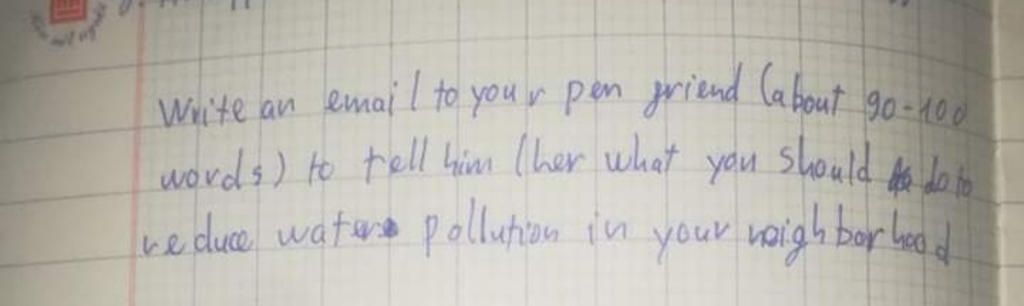 Write an email to your pen friend (about 90-100
words) to tell him (her what you should do to
reduce water pollution in your neighborhood